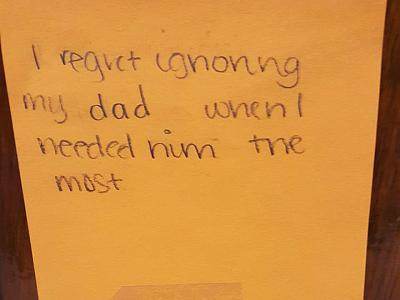 I regret ignoring
my dad when I
needed him the
most